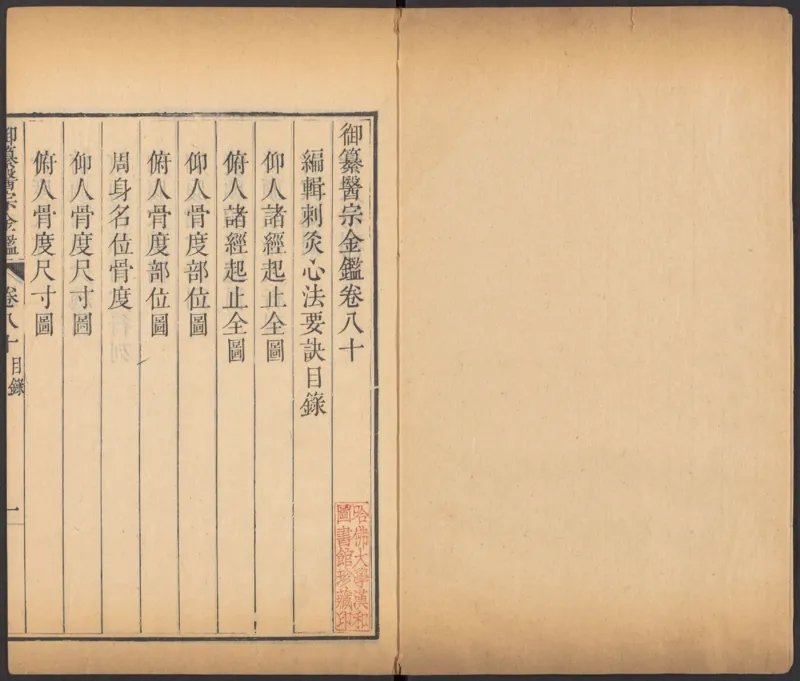 御纂醫宗金鑑卷八十
編輯刺灸心法要訣目錄
仰人諸經起止全圖
俯人諸經起止全圖
仰人骨度部位圖
俯人骨度部位圖
周身名位骨度
仰人骨度尺寸圖
俯人骨度尺寸圖
御纂醫宗金鑑
卷八十 目錄
一
哈佛大學漢和
圖書館珍藏印